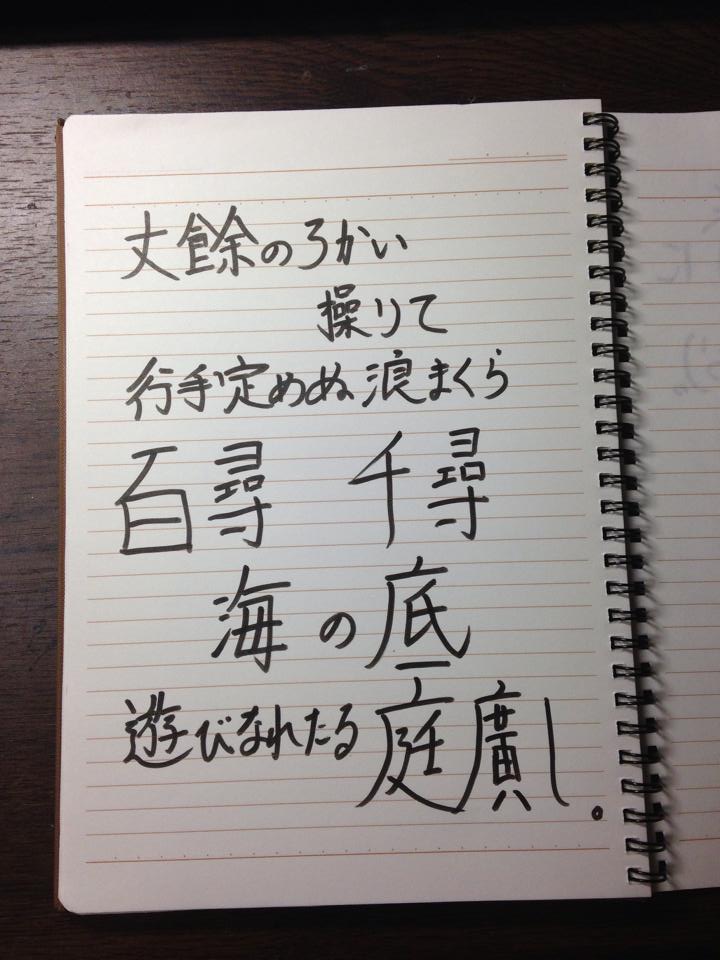 丈餘のろかい
操りて
行手定めぬ浪まくら
百尋 千尋
海の底
遊びなれたる庭廣し。